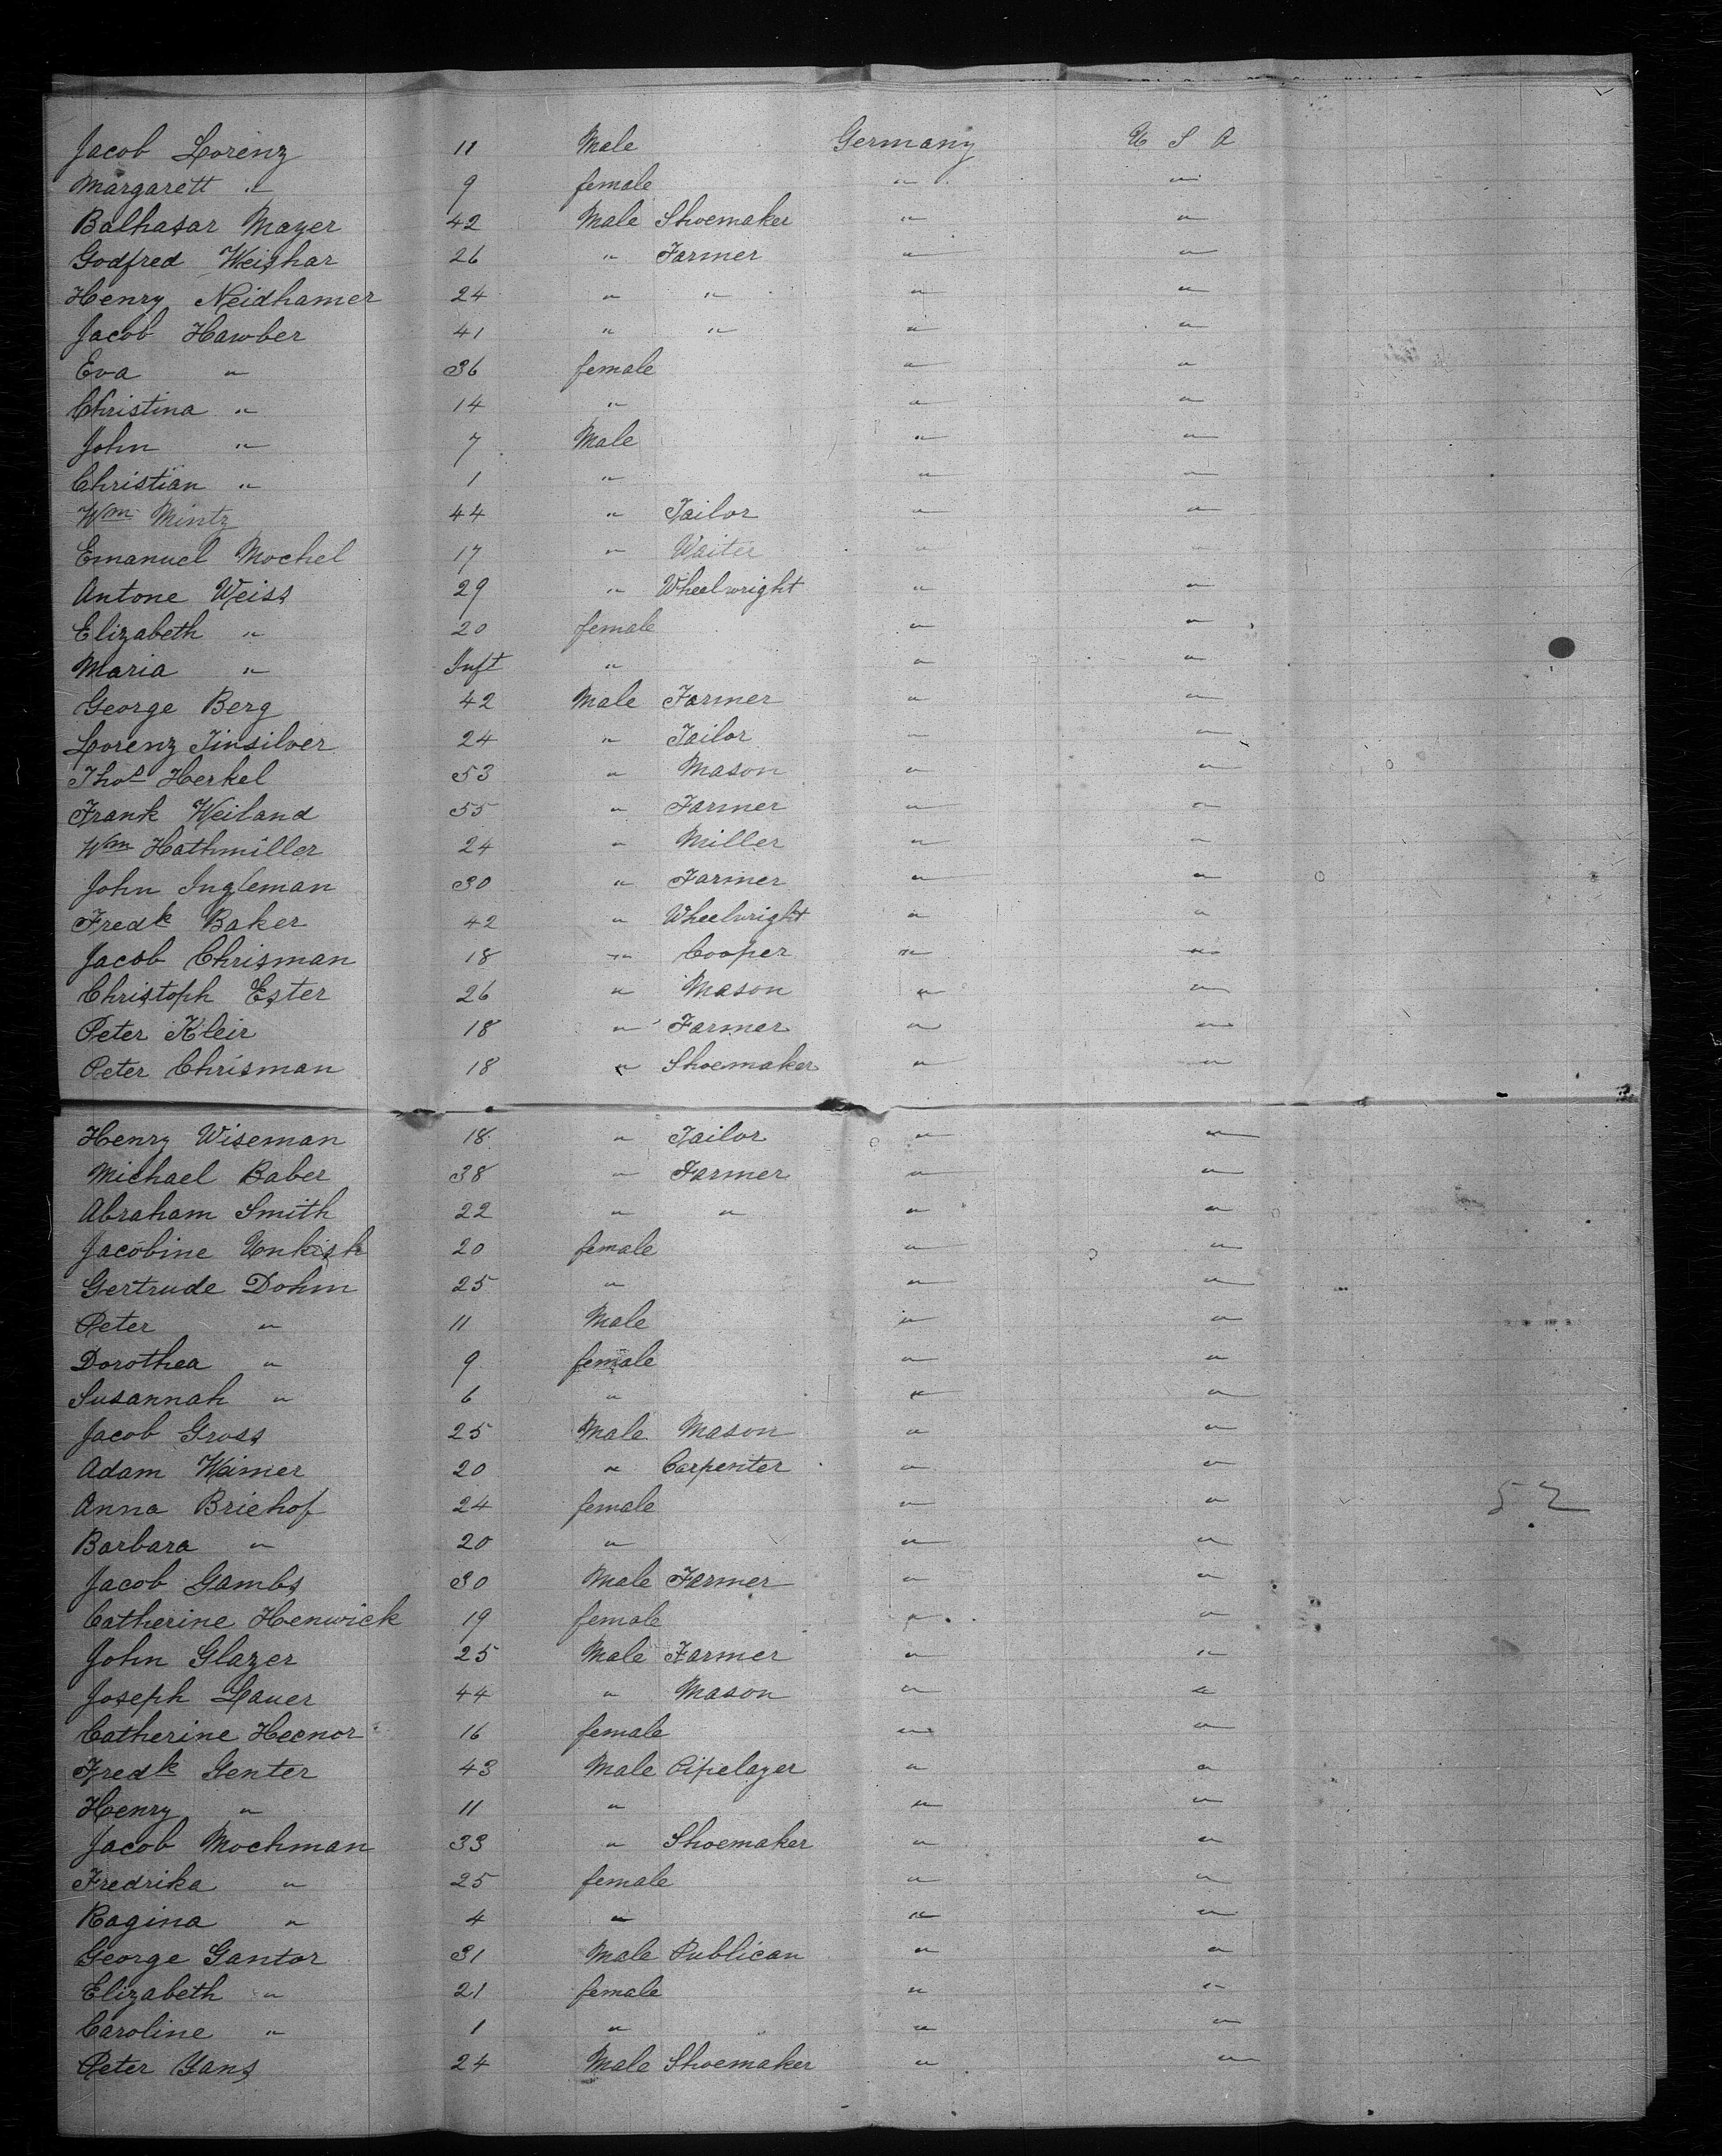 Jacob Lorenz 11 Male Germany U S A
Margarett " 9 female " "
Balhasar Mayer 42 Male Shoemaker " "
Godfred Weishar 26 " Farmer " "
Henry Neidhamer 24 " " " "
Jacob Hawber 41 " " " "
Eva " 36 female " "
Christina " 14 " " "
John " 7 Male " "
Christian " 1 " " "
Wm Mintz 44 " Tailor " "
Emanuel Mochel 17 " Waiter " "
Antone Weiss 29 " Wheelwright " "
Elizabeth " 20 female " "
Maria " Inft " " "
George Berg 42 Male Farmer " "
Lorenz Tinsilver 24 " Tailor " "
Thos Herkel 53 " Mason " "
Frank Weiland 55 " Farmer " "
Wm Hathmiller 24 " Miller " "
John Ingleman 30 " Farmer " "
Fredk Baker 42 " Wheelwright " "
Jacob Chrisman 18 " Cooper " "
Christoph Ester 26 " Mason " "
Peter Kleir 18 " Farmer " "
Peter Chrisman 18 " Shoemaker " "
Henry Wiseman 18 " Tailor " "
Michael Baber 38 " Farmer " "
Abraham Smith 22 " " " "
Jacobine 20 female " "
Gertrude Dohm 25 " " "
Peter " 11 Male " "
Dorothea " 9 female " "
Susannah " 6 " " "
Jacob Gross 25 Male Mason " "
Adam Weimer 20 " Carpenter " "
Anna Briehof 24 female " "
Barbara " 20 " " "
Jacob Gambs 30 Male Farmer " "
Catherine Henwick 19 female " "
John Glazer 25 Male Farmer " "
Joseph Lauer 44 " Mason " "
Catherine Hecnor 16 female " "
Fredk Genter 43 Male Pipelayer " "
Henry " 11 " " "
Jacob Mochman 33 " Shoemaker " "
Fredrika " 25 female " "
Ragina " 4 " " "
George Gantor 31 Male Publican " "
Elizabeth " 21 female " "
Caroline " 1 " " "
Peter Yans 24 Male Shoemaker " "
52